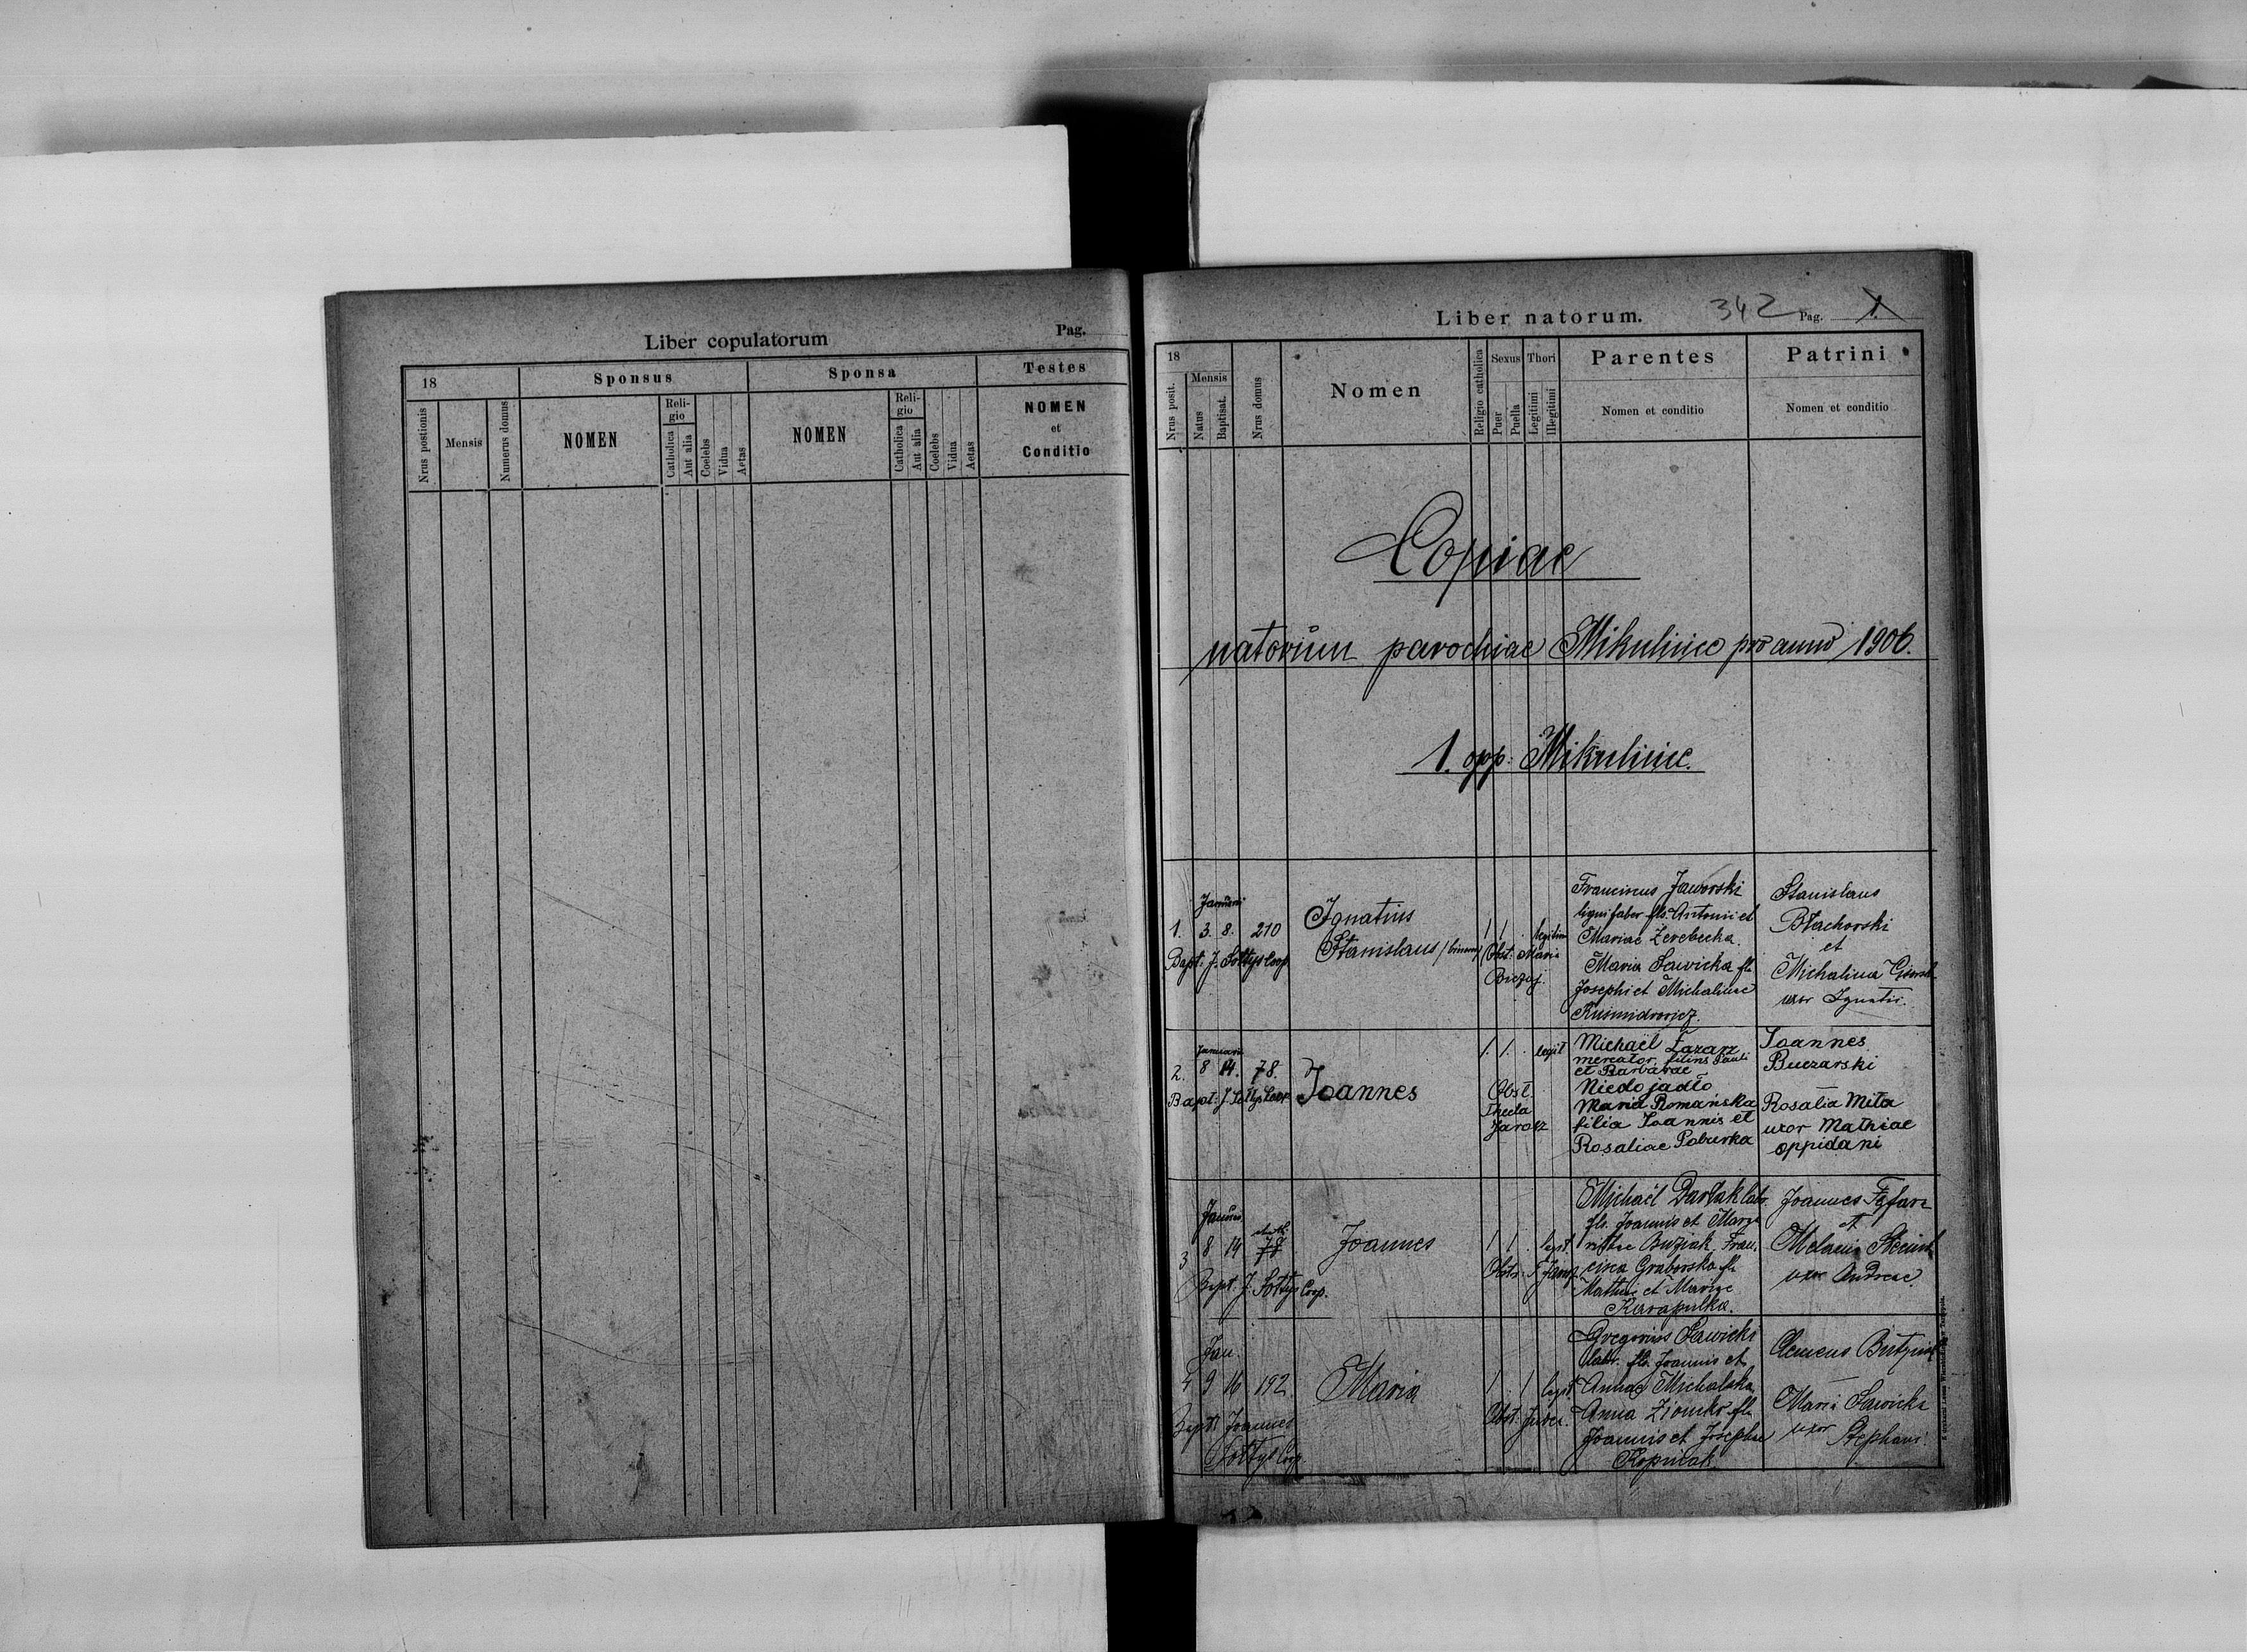 Liber copulatorum
Pag.
18
Sponsus
Sponsa
Testes
Nrus postionis
Mensis
Numerus domus
NOMEN
Reli-
gio
Catholica
Aut alia
Coelebs
Vidua
Aetas
NOMEN
Reli-
gio
Catholica
Aut alia
Coelebs
Vidua
Aetas
NOMEN
et
Conditio
Liber natorum.
342
Pag. 1.
18
Nrus posit.
Mensis
Natus
Baptisat.
Nrus domus
Nomen
Religio catholica
Sexus
Puer
Puella
Thori
Legitimi
Illegitimi
Parentes
Nomen et conditio
Patrini
Nomen et conditio
Copiae
natorum parochiae Mikulince pro anno 1906.
1. opp. Mikulince.
Januarii
1. 3. 8. 210
Bapt. J. Sołtys Coop.
Ignatius
Stanislaus
1 1 .
Obst. Maria
Franciscus Jaworski
ligni faber fls. Antonii et
Mariae Zerebecka.
Maria Sawicka fla
Josephi et Michalinae
Stanislaus
Błachorski
et
Michalina
uxor Ignatii.
Januarii
2. 8 14. 78.
Bapt. J. Sołtys Coop.
Joannes
1. 1. . legit
Obst.
Thecla
Jarosz
Michaël Łazarz
mercator, filius Pauli
et Barbarae
Niedojadło
Maria Romańska
filia Joannis et
Rosaliae Poburka
Joannes
Buczarski
Rosalia Mita
uxor Mathiae
oppidani
3 8 14 78
Bapt. J. Sołtys Coop.
Joannes
1 1 . legit.
Obst. T. Jarosz
Michaël Darłak
fls. Joannis et Marga
ritae Buziak. Fran
cisca Graborska fla
Mathiae et Mariae
Karapulka.
Joannes
et
Melania
uxor Andreae.
Jan
4 9 16 192
Bapt. Joannes
Sołtys Coop.
Maria
1 . 1 legit
Obst.
Gregorius Sawicki
fls. Joannis et
Annae Michalska
Anna Ziomko fla
Joannis et Josephae
Kopulak.
Clemens
Maria Sawicka
uxor Stephani